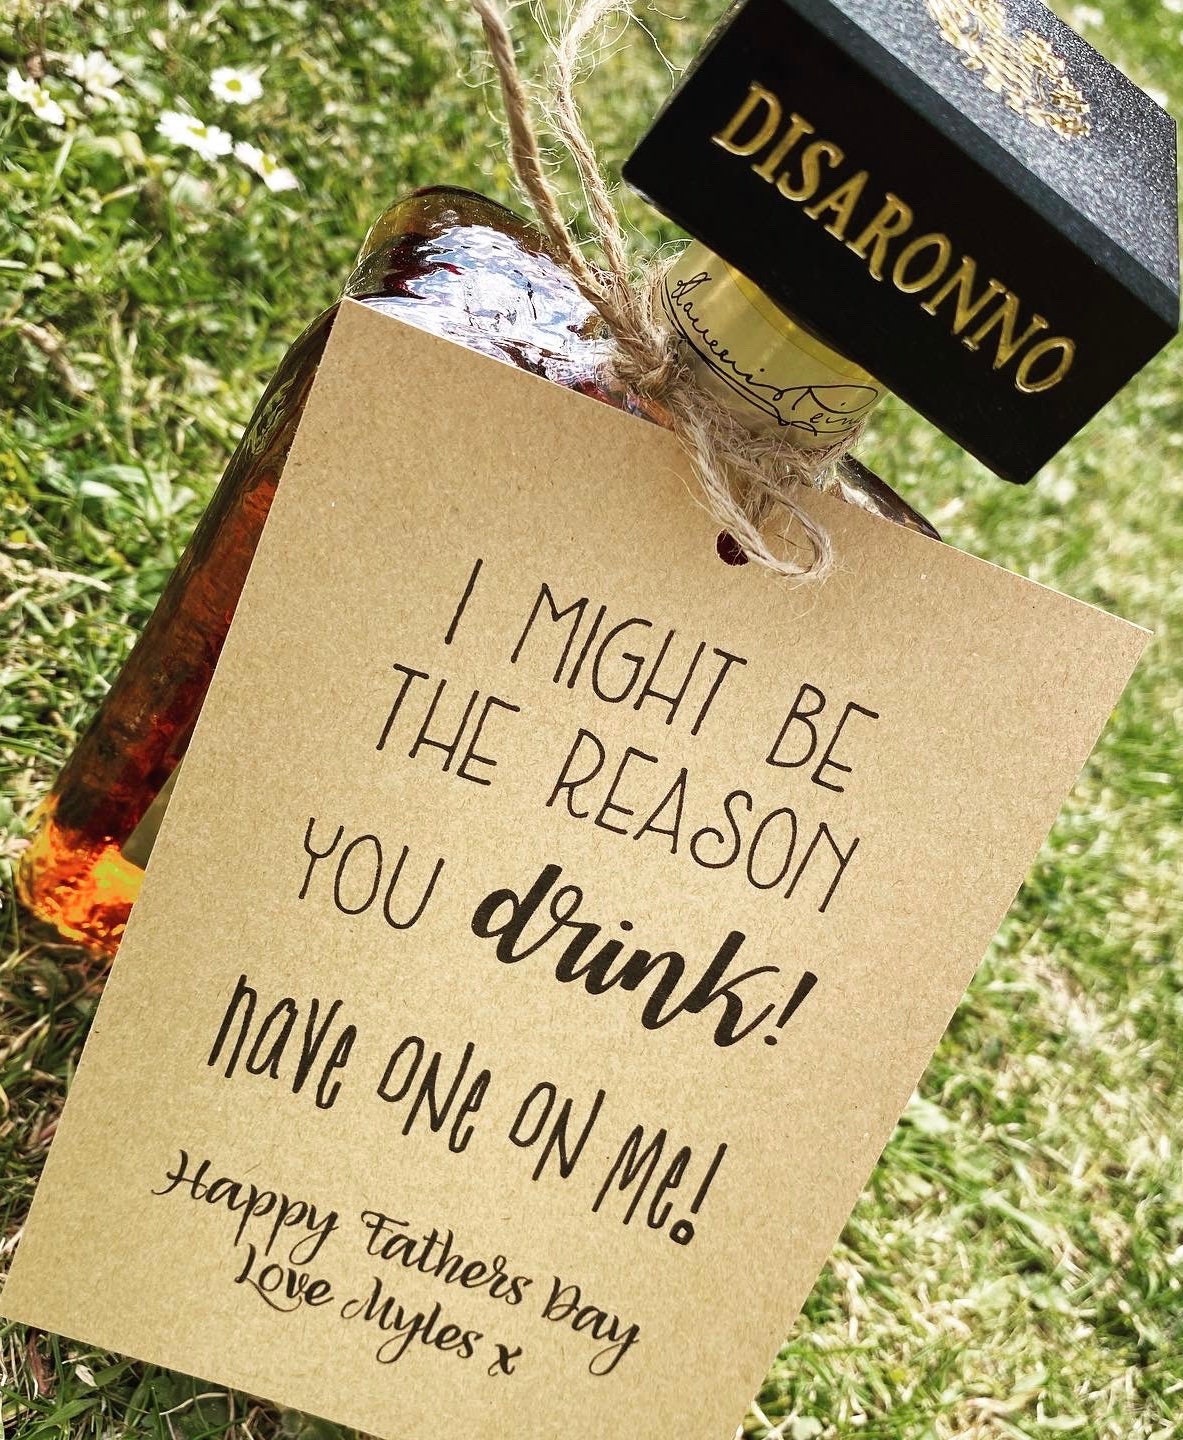 DISARONNO
I MIGHT BE
THE REASON
YOU drink!
have one on me!
Happy Fathers Day
Love Myles x